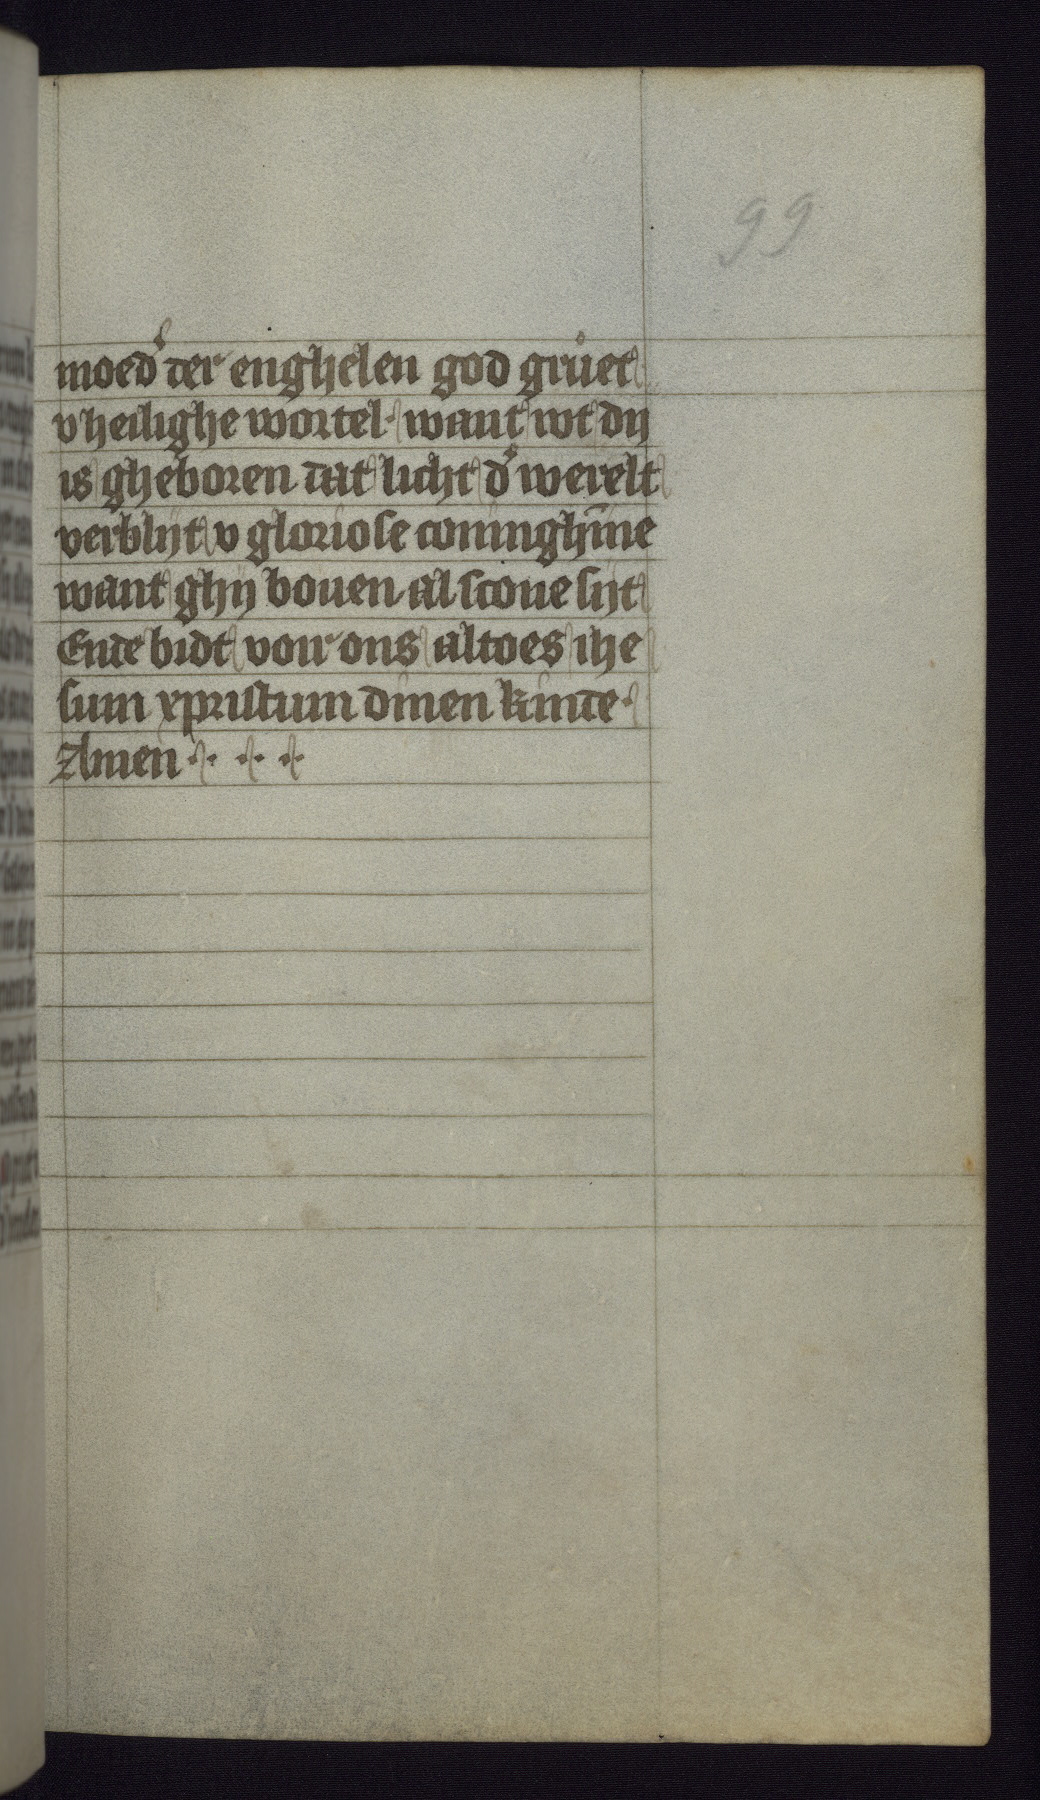 99
moed' der enghelen god gruet
v heilighe wortel · want wt dij
is gheboren dat licht d' werelt
verblijt v gloriose coninghīne
want ghij bouen al scone sijt
Ende bidt voir ons altoes ihe
sum xpristum dinen kinde ·
Amen · · · ·